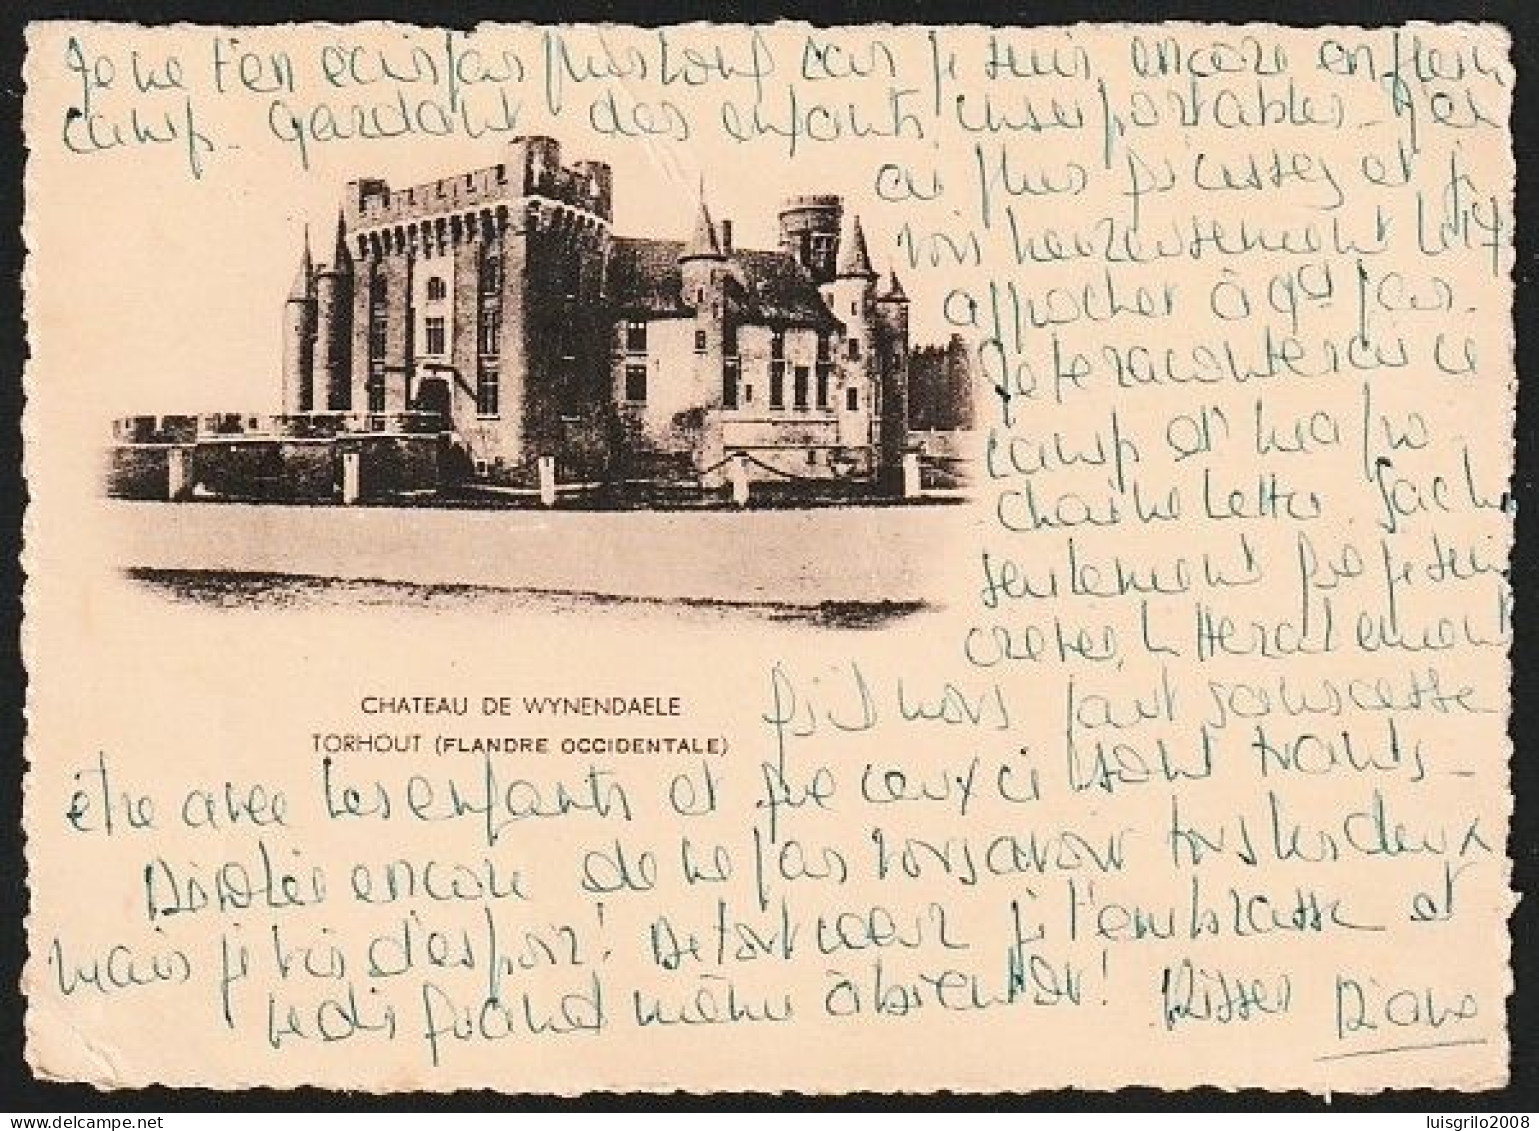 Je ne t'en écris pas plus long car je suis encore en plein
camp. gardant des enfants insupportables. J'en
ai plus qu'assez et je
vois heureusement le 17
approcher à gds pas.
Je te raconterai ce
camp et ma pro-
chaine lettre. Sache
seulement que je suis
crevée, littéralement
qu'il nous faut sans cesse
CHATEAU DE WYNENDAELE
TORHOUT (FLANDRE OCCIDENTALE)
être avec les enfants et que ceux ci sont
Désolée encore de ne pas vous avoir tous les deux
mais je vis d'espoir! De tout coeur je t'embrasse et
te dis quand même à bientôt! Kisses Diane
luisgrilo2008